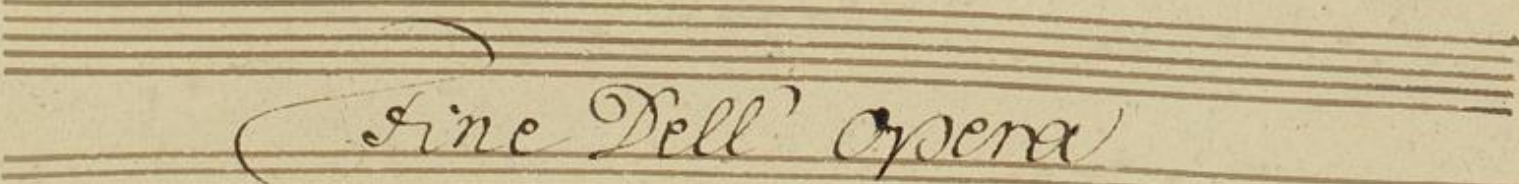 Fine Dell' Opera